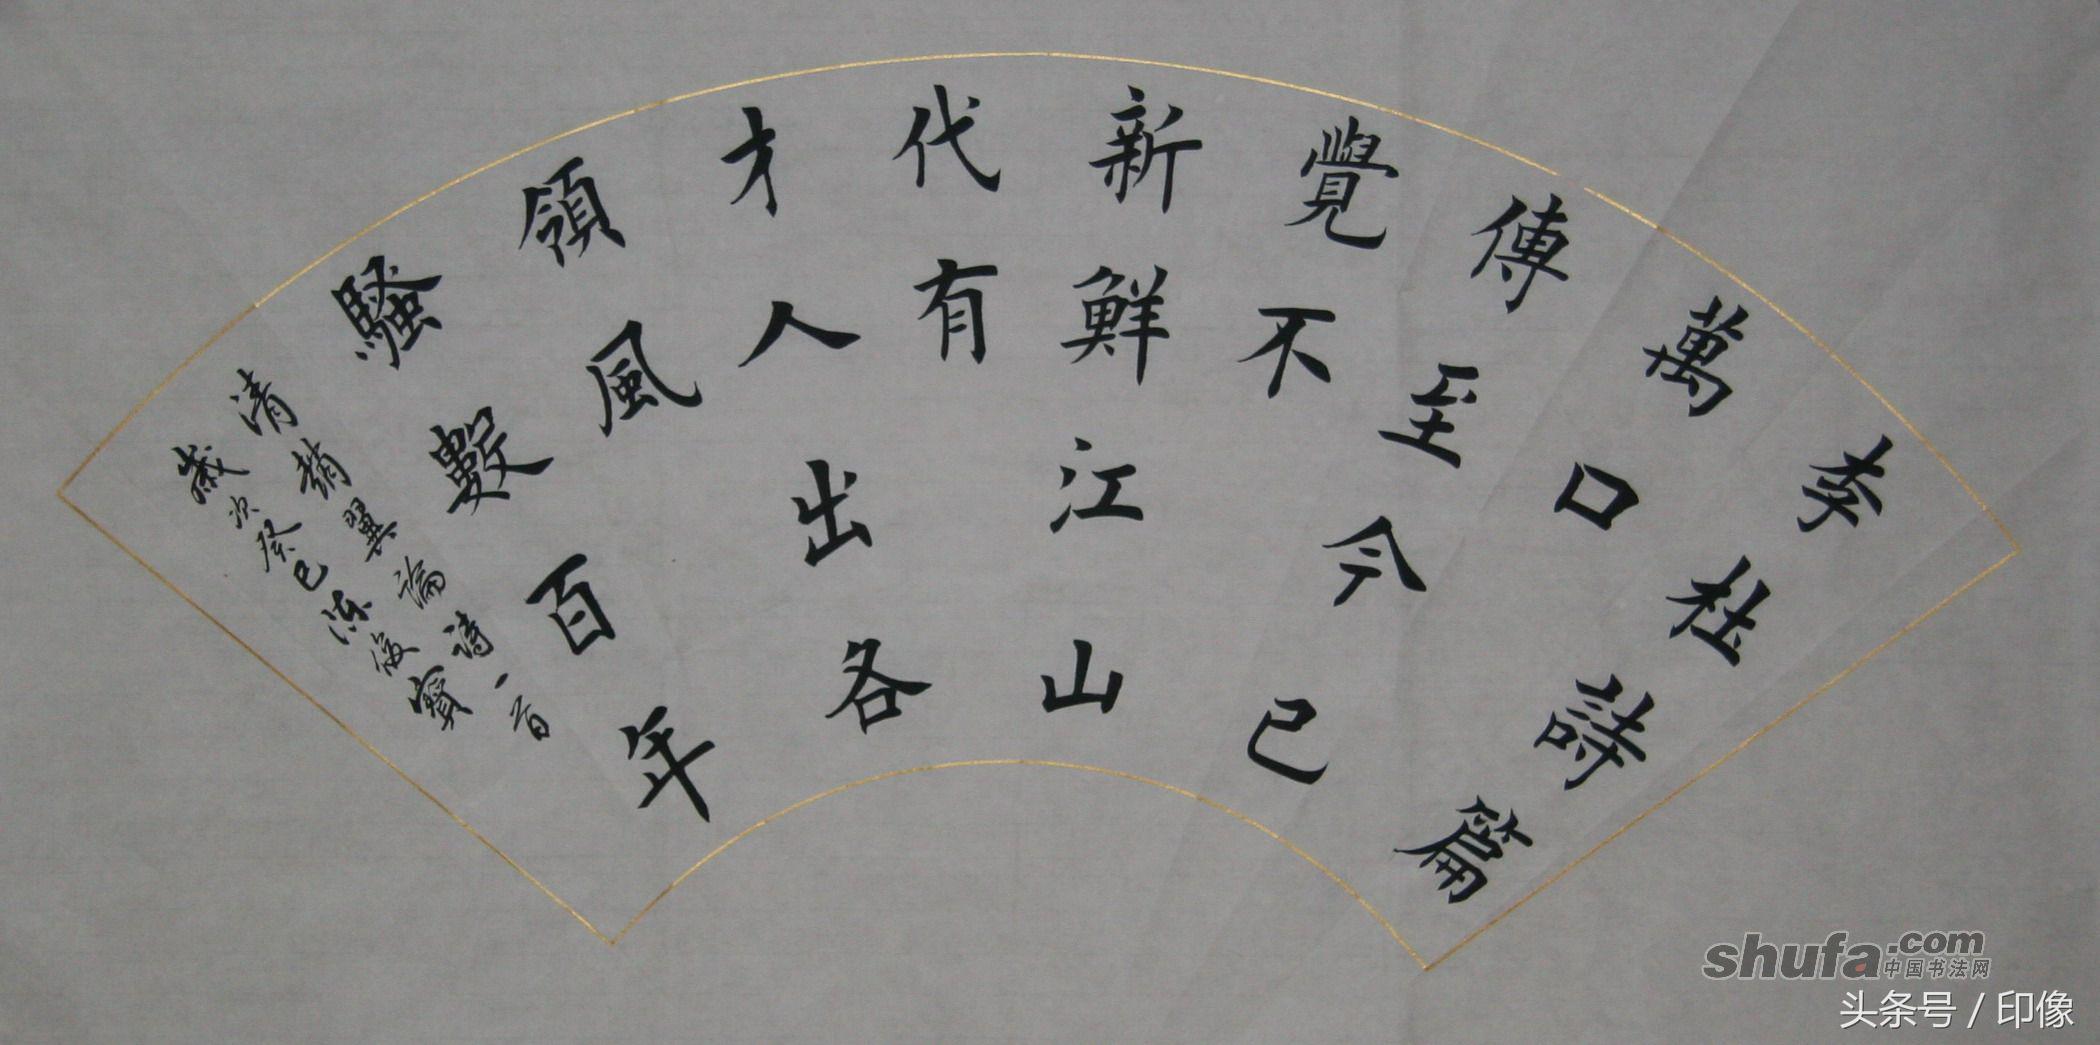 李杜詩篇
萬口
傳至今已
覺不
新鮮江山
代有
才人出各
領風
騷數百年
清趙翼論詩一首
歲次癸巳陈俊寶
shufa.com
中国书法网
头条号 / 印像